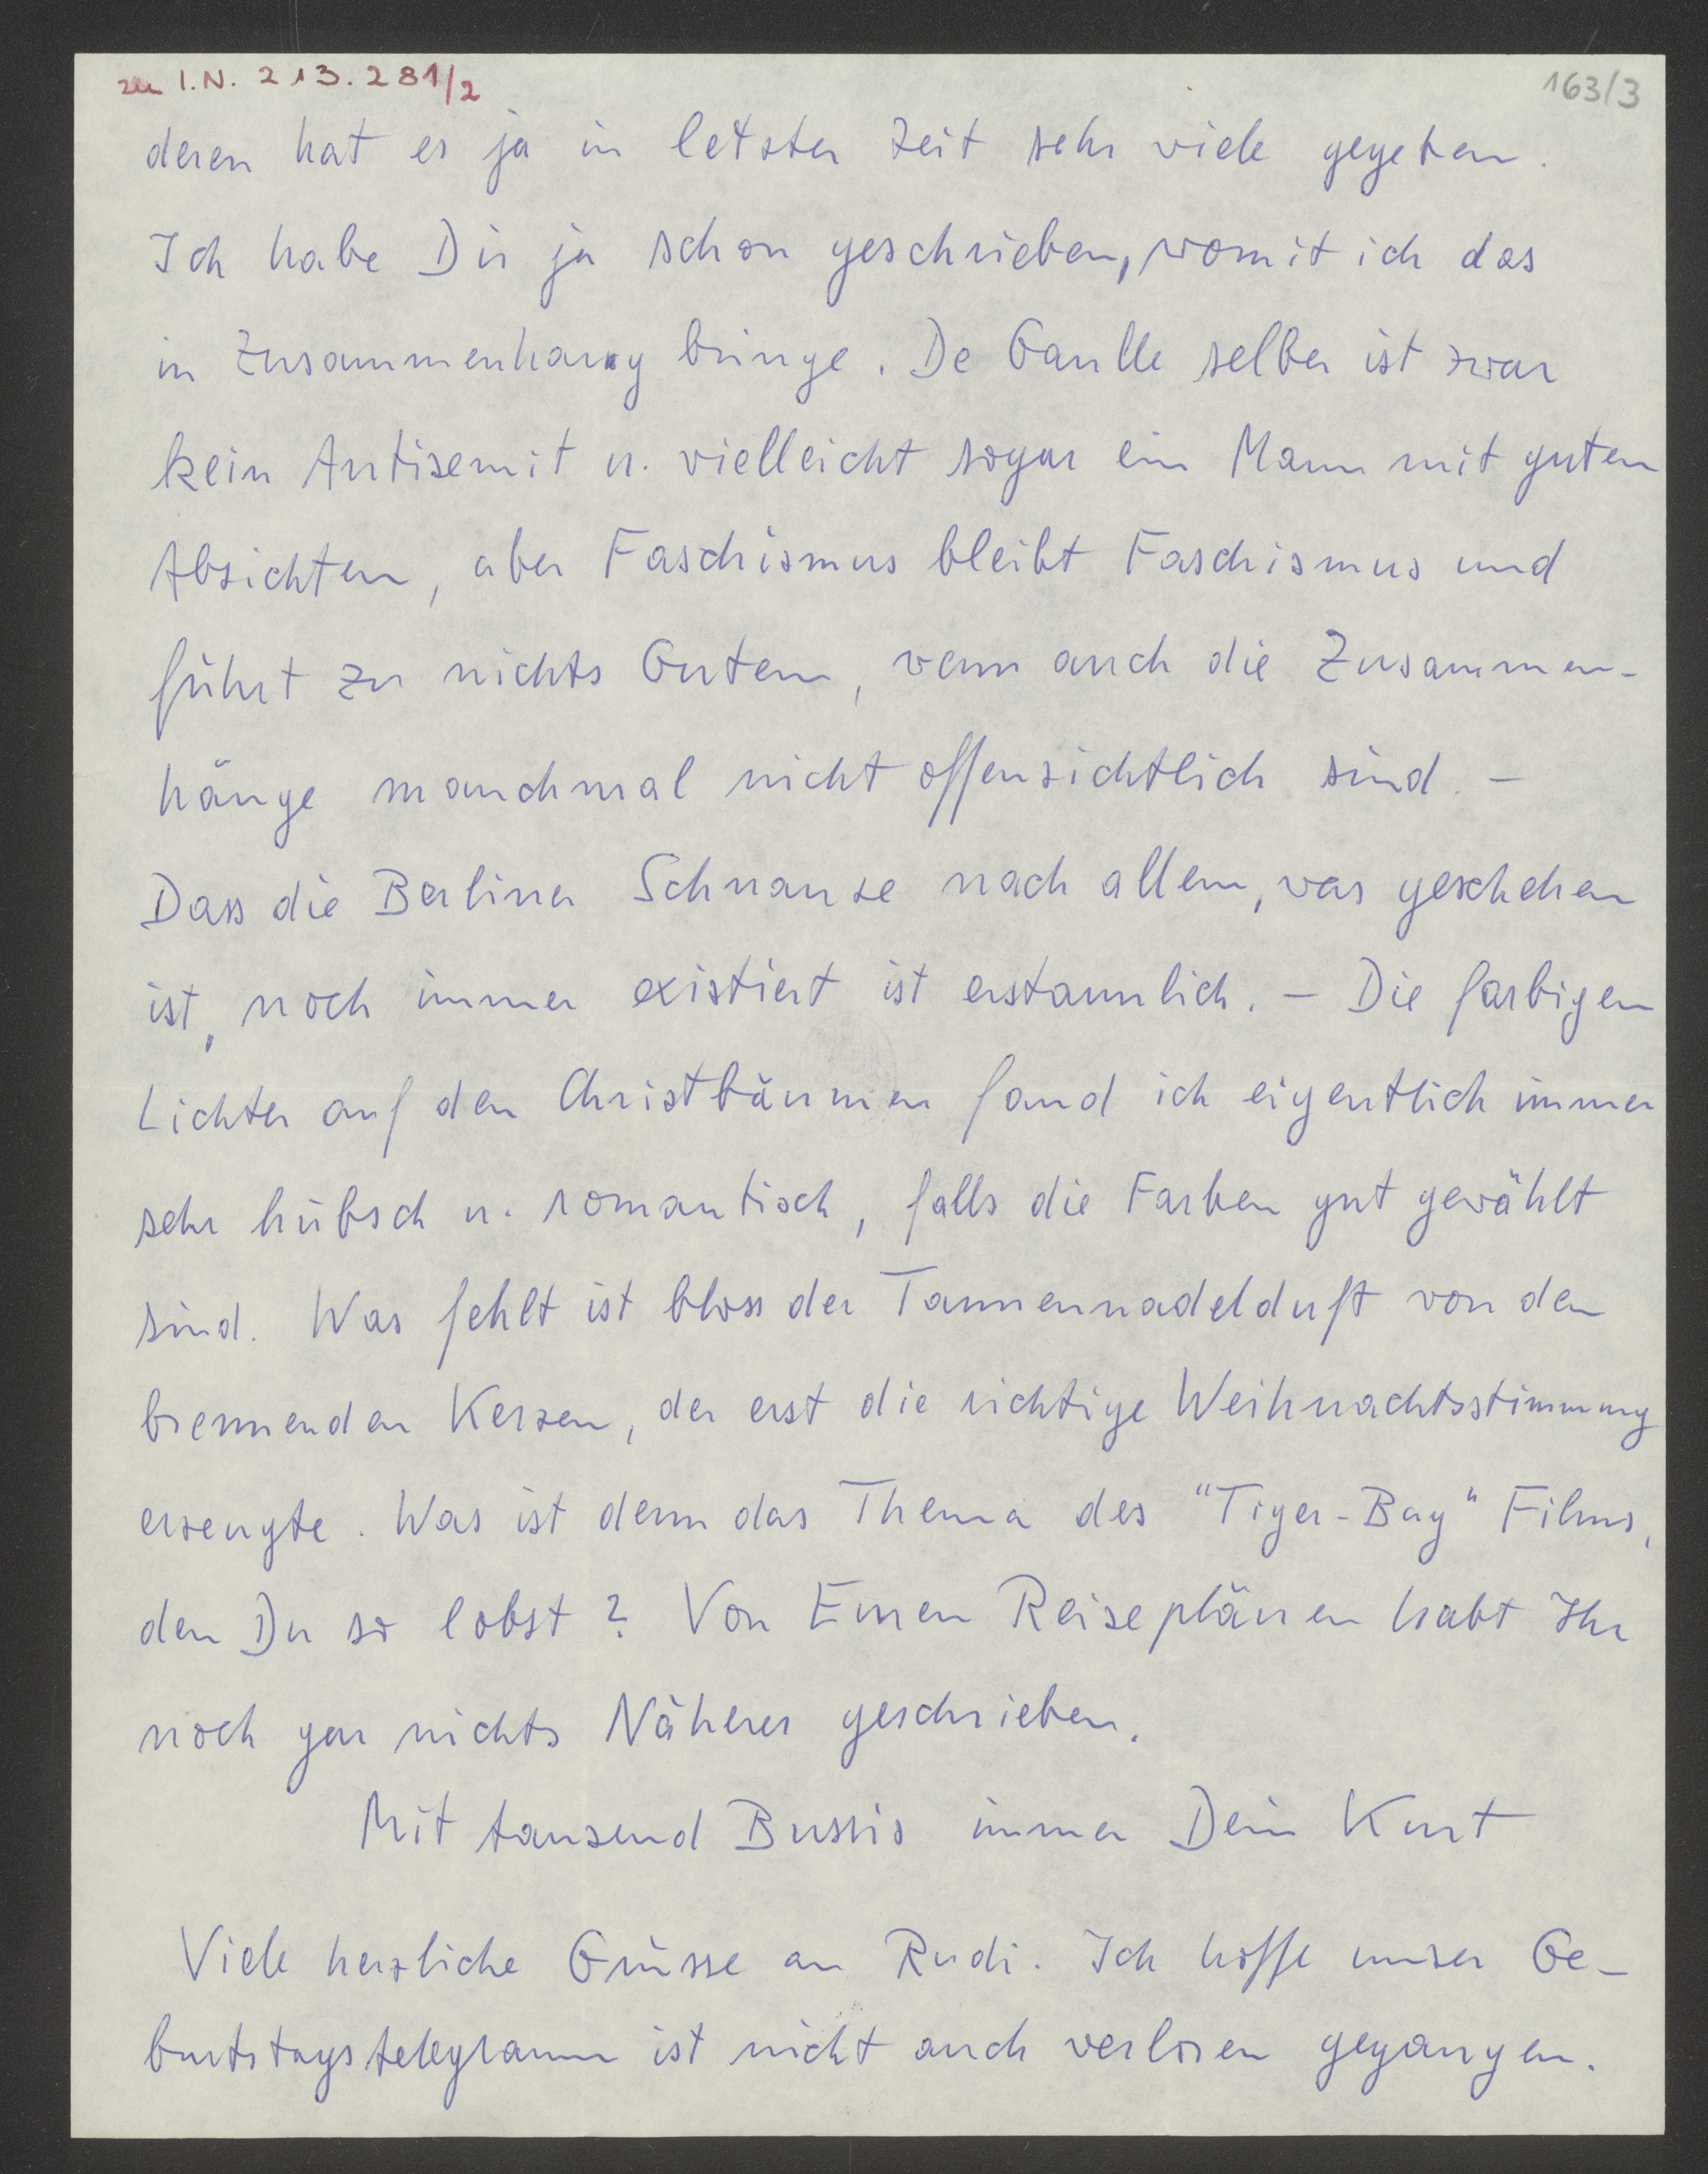 zu I.N. 213.281/2
163/3
deren hat es ja in letzter Zeit sehr viele gegeben.
Ich habe Dir ja schon geschrieben, womit ich das
in Zusammenhang bringe. De Gaulle selber ist zwar
kein Antisemit u. vielleicht sogar ein Mann mit guten
Absichten, aber Faschismus bleibt Faschismus und
führt zu nichts Gutem, wenn auch die Zusammen-
hänge manchmal nicht offensichtlich sind. –
Dass die Berliner Schnauze nach allem, was geschehen
ist, noch immer existiert ist erstaunlich. – Die farbigen
Lichter auf den Christbäumen fand ich eigentlich immer
sehr hübsch u. romantisch, falls die Farben gut gewählt
sind. Was fehlt ist bloss der Tannennadelduft von den
brennenden Kerzen, der erst die richtige Weihnachtsstimmung
erzeugte. Was ist denn das Thema des "Tiger-Bay" Films,
den Du so lobst? Von Euren Reiseplänen habt Ihr
noch gar nichts Näheres geschrieben.
Mit tausend Bussis immer Dein Kurt
Viele herzliche Grüsse an Rudi. Ich hoffe unser Ge-
burtstagstelegramm ist nicht auch verloren gegangen.